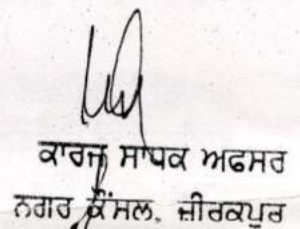 ਕਾਰਜ ਸਾਧਕ ਅਫਸਰ
ਨਗਰ ਕੌਂਸਲ, ਜ਼ੀਰਕਪੁਰ